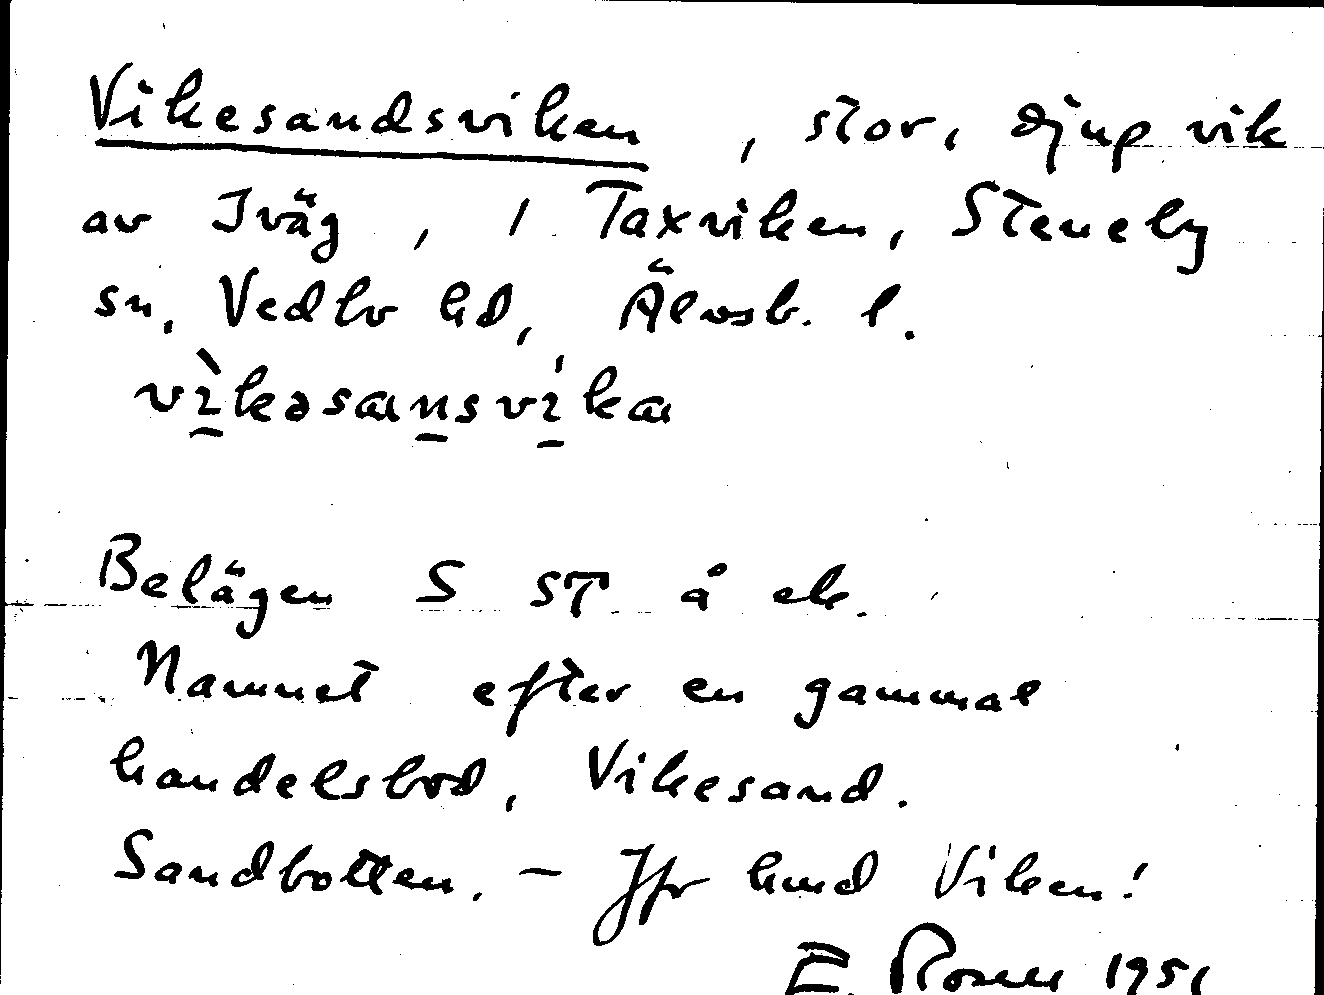 Vikesandsviken, stor, djup vik
av Iväg, i Taxviken, Steneby
sn, Vedbo hd, Älvsb. l.
vìkəsansvíka
Belägen S ST å ek.
Namnet efter en gammal
handelsbod, Vikesand.
Sandbotten. – Jfr hmd Viken!
E. 1951